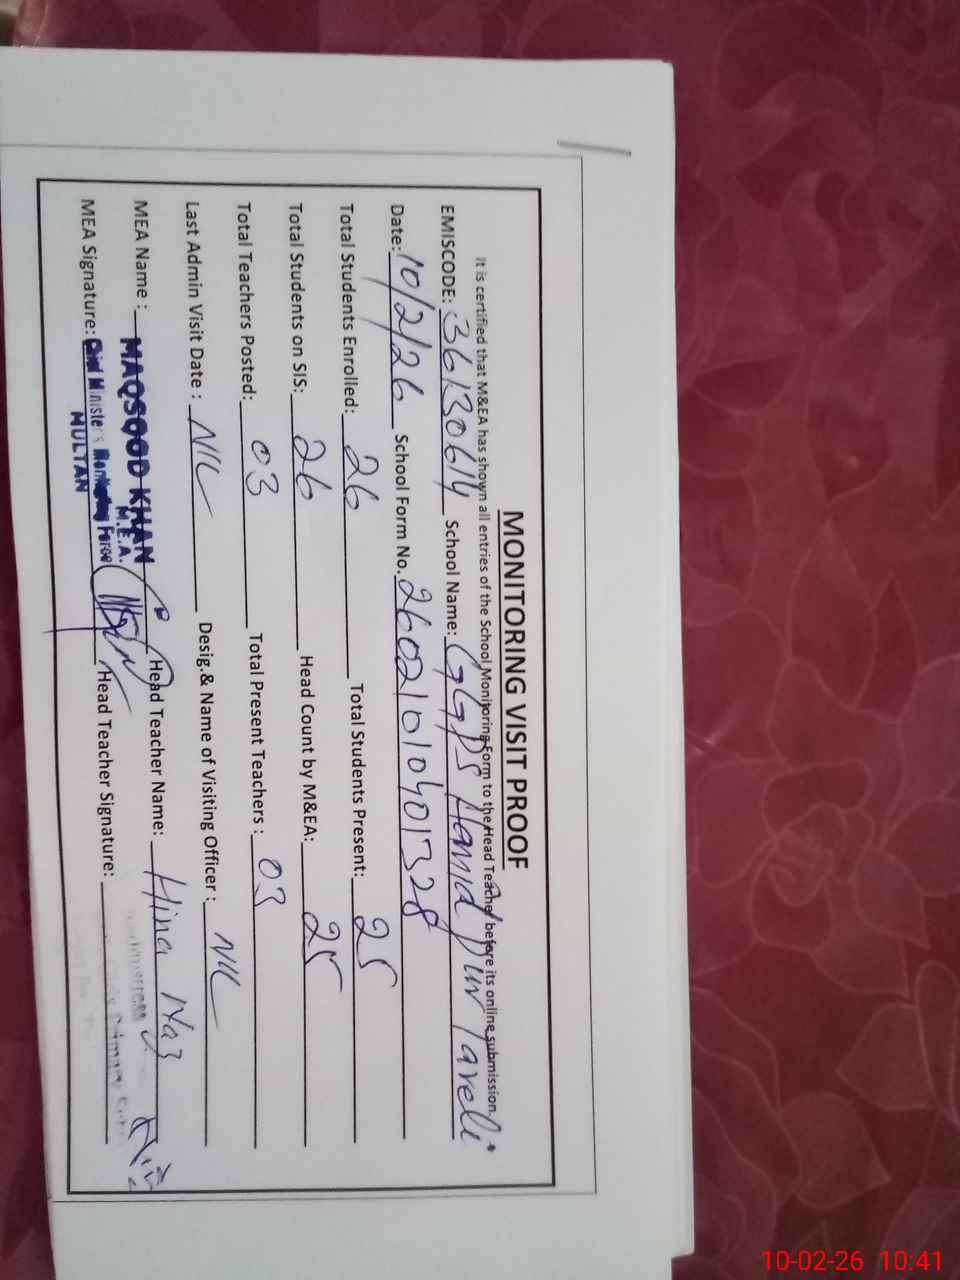 MONITORING VISIT PROOF
It is certified that M&EA has shown all entries of the School Monitoring Form to the Head Teacher before its online submission.
EMISCODE: 36130614 School Name: GGPS Hamid Pur
Date: 10/2/26 School Form No. 2602101040 1328
Total Students Enrolled: 26 Total Students Present: 25
Total Students on SIS: 26 Head Count by M&EA: 25
Total Teachers Posted: 03 Total Present Teachers : 03
Last Admin Visit Date : NIL Desig.& Name of Visiting Officer : NIL
MEA Name : MAQSOOD KHAN Head Teacher Name: Hina Naz
M.E.A.
MEA Signature: Chief Minister's Monitoring Force Head Teacher Signature:
MULTAN
10-02-26 10:41